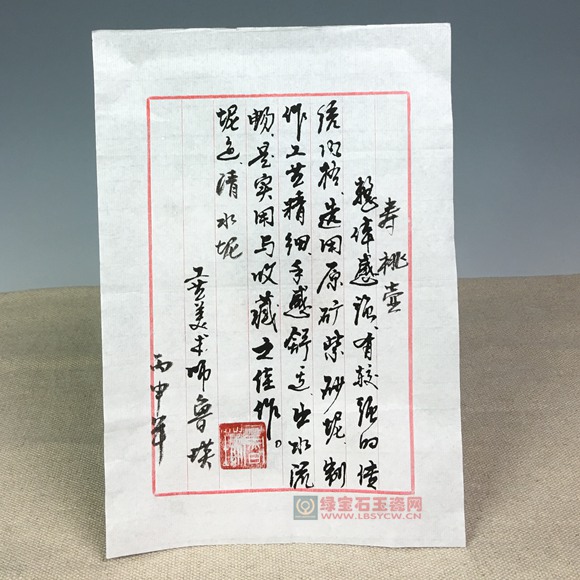 寿桃壶
整体感强、有较强的传
统风格、选用原矿紫砂坭、制
作工艺精细、手感舒适、出水流
畅、是实用与收藏之佳作。
坭色、清水坭
工艺美术师鲁瑛
丙申年
绿宝石玉瓷网
WWW.LBSYCW.CN